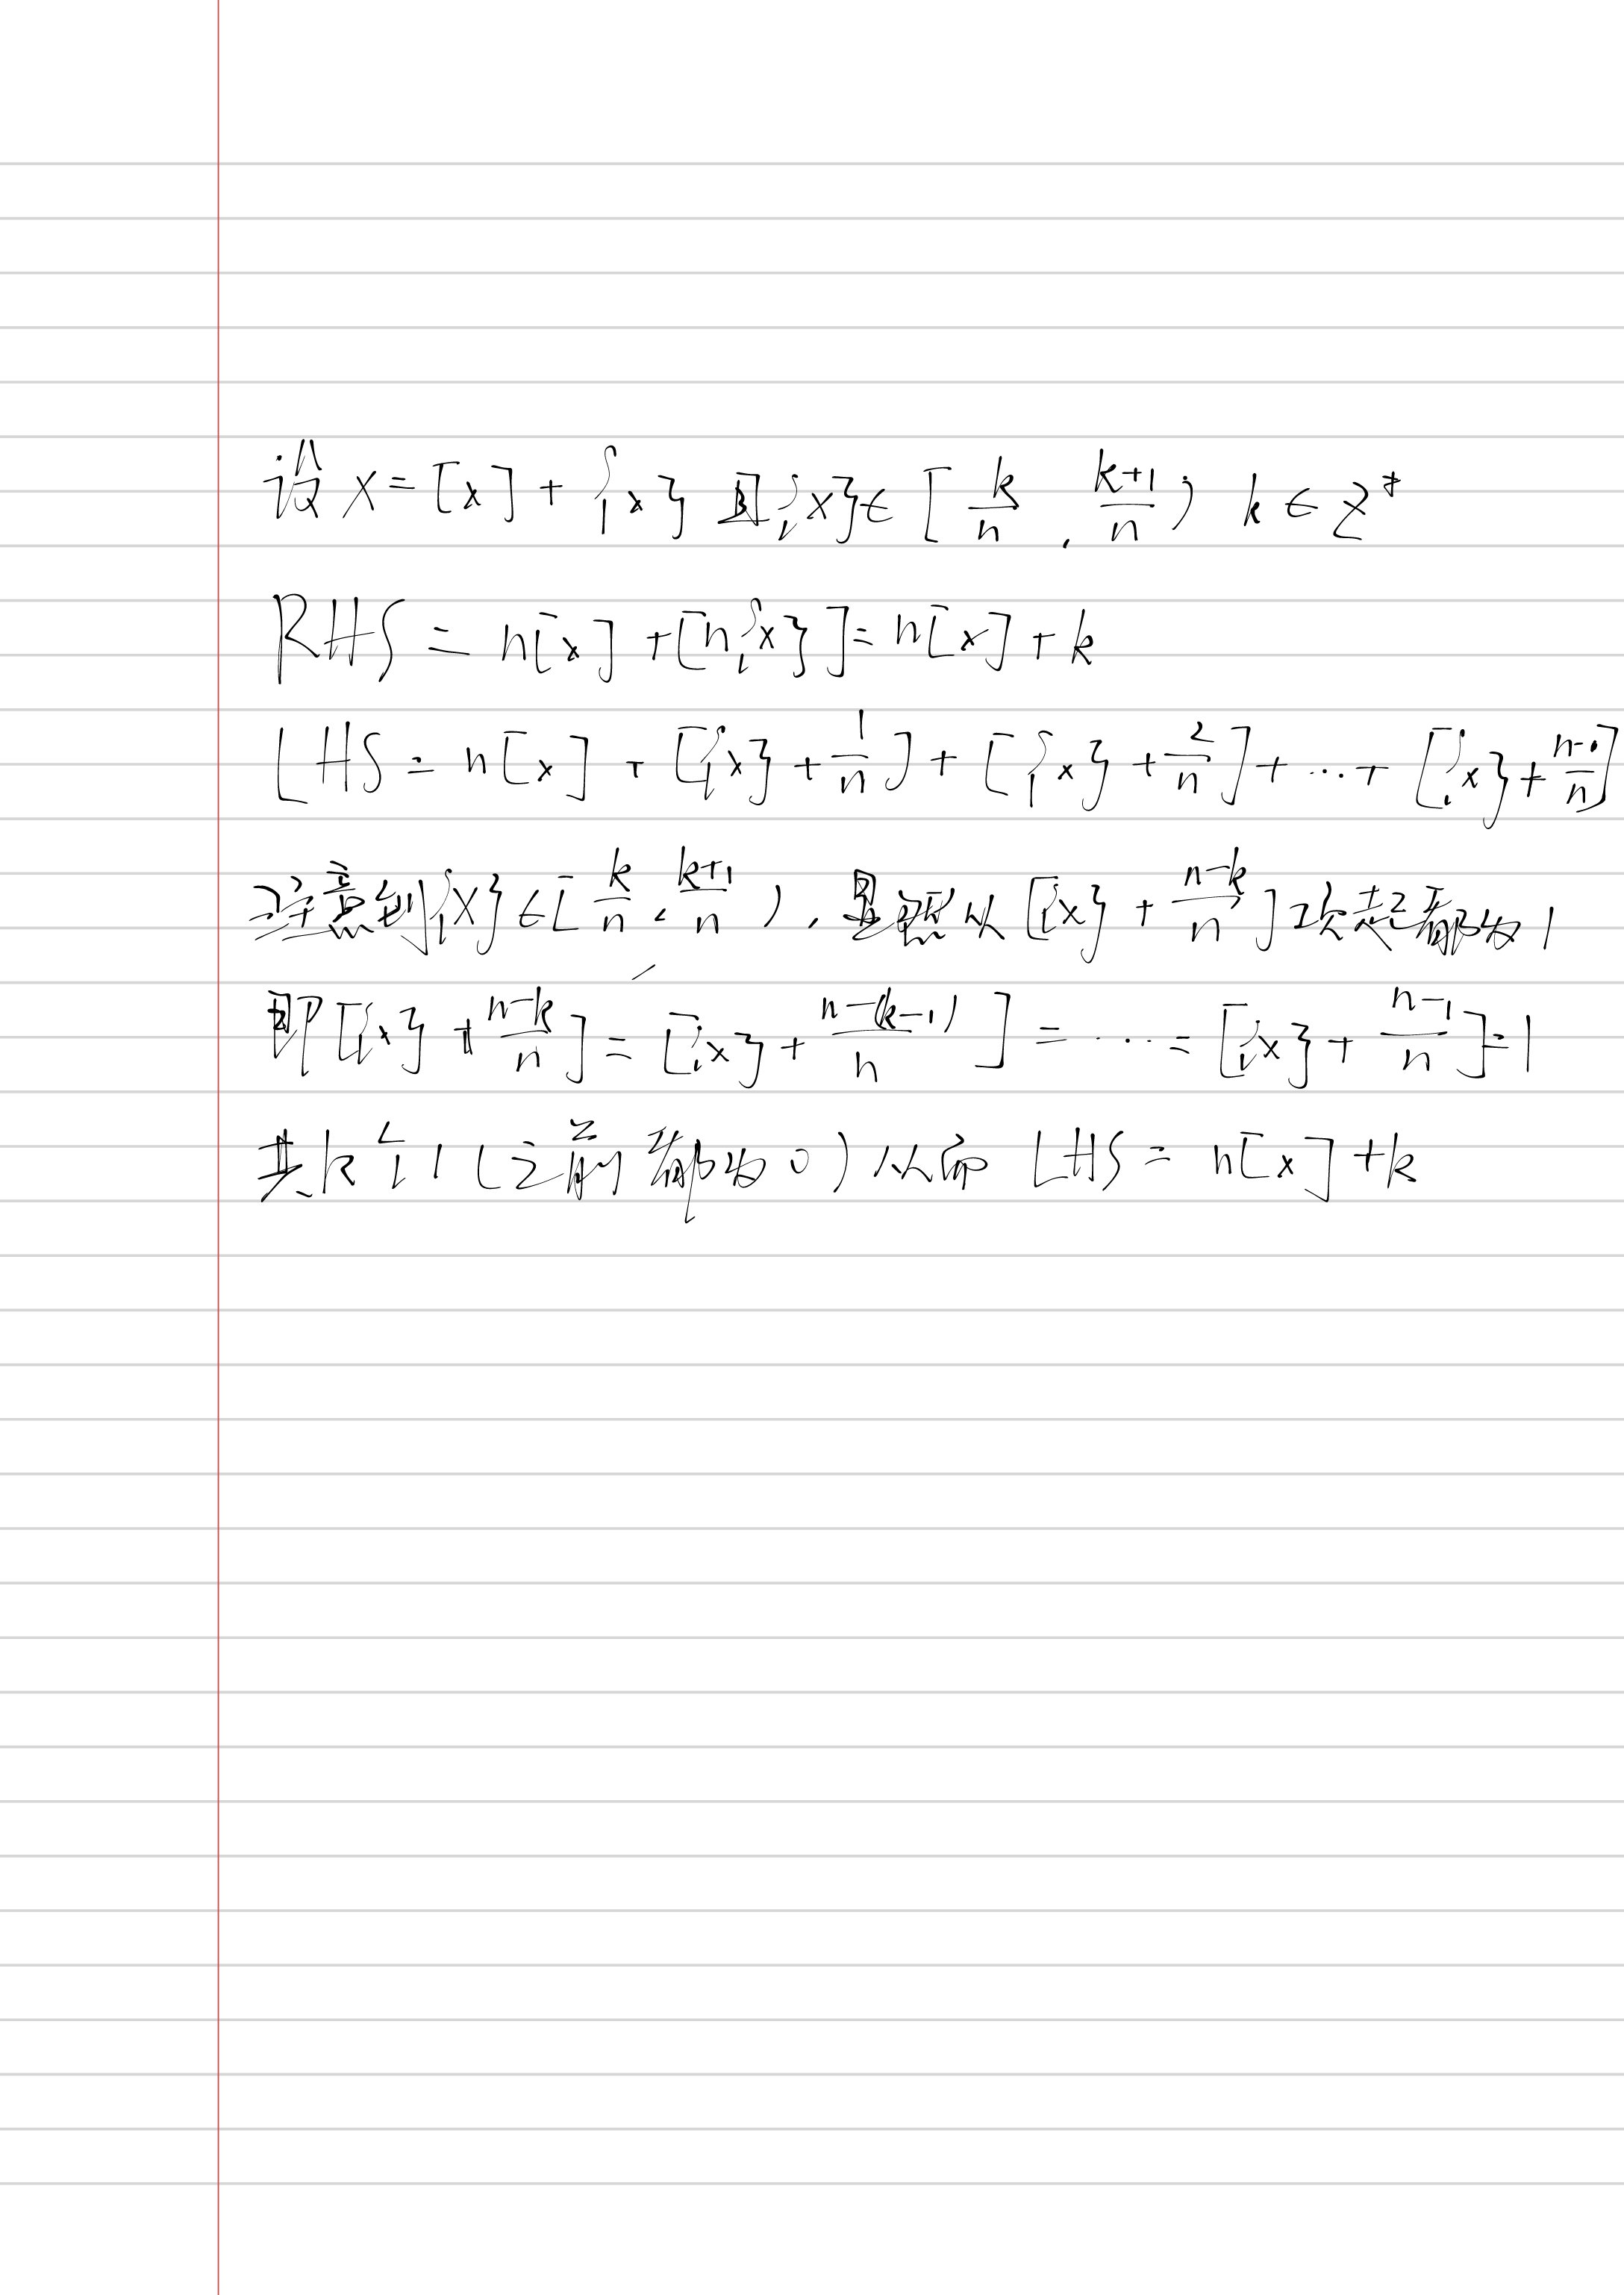 设 x = [x] + {x} 且 {x} ∈ [k/n, (k+1)/n) k ∈ Z⁺
RHS = n[x] + [n{x}] = n[x] + k
LHS = n[x] + [{x} + 1/n] + [{x} + 2/n] + ... + [{x} + (n-1)/n]
注意到 {x} ∈ [k/n, (k+1)/n), 显然从 [{x} + (n-k)/n] 项起都为 1
即 [{x} + (n-k)/n] = [{x} + (n-(k-1))/n] = ... = [{x} + (n-1)/n] = 1
共 k 个 1 (之前都为 0) 从而 LHS = n[x] + k